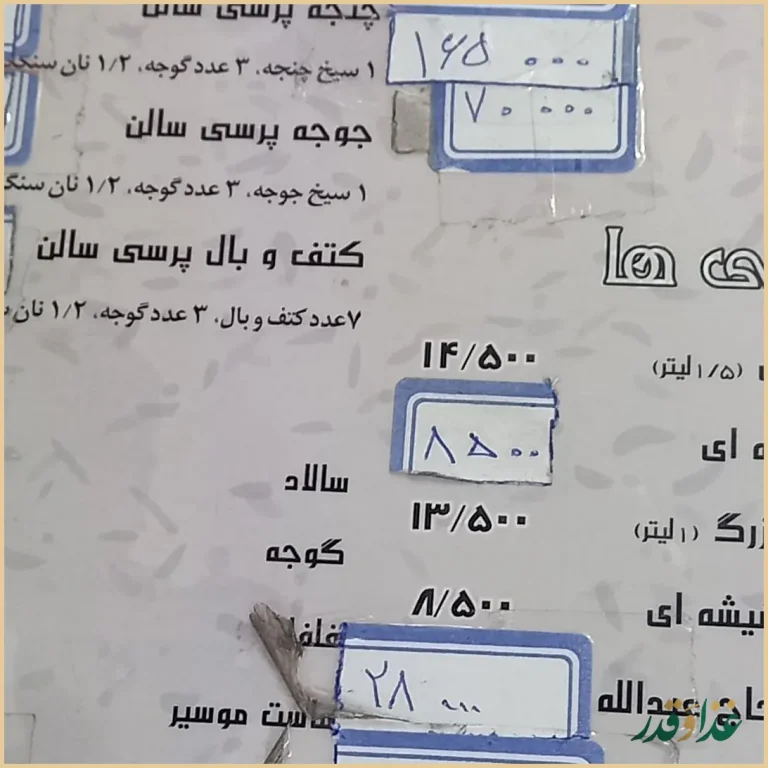 ۱۶۵ ۰۰۰
۷۰ ۰۰۰
ی ها
(۱/۵ لیتر)
۱۴/۵۰۰
ه ای
۸۵۰۰
(۱ لیتر)
۱۳/۵۰۰
یشه ای
۸/۵۰۰
حاج عبدالله
۲۸ ۰۰۰
چنجه پرسی سالن
۱ سیخ چنجه، ۳ عدد گوجه، ۱/۲ نان سنگک
جوجه پرسی سالن
۱ سیخ جوجه، ۳ عدد گوجه، ۱/۲ نان سنگ
کتف و بال پرسی سالن
۷ عدد کتف و بال، ۳ عدد گوجه، ۱/۲ نان
سالاد
گوجه
فلفل
ماست موسیر
غذاوقدر